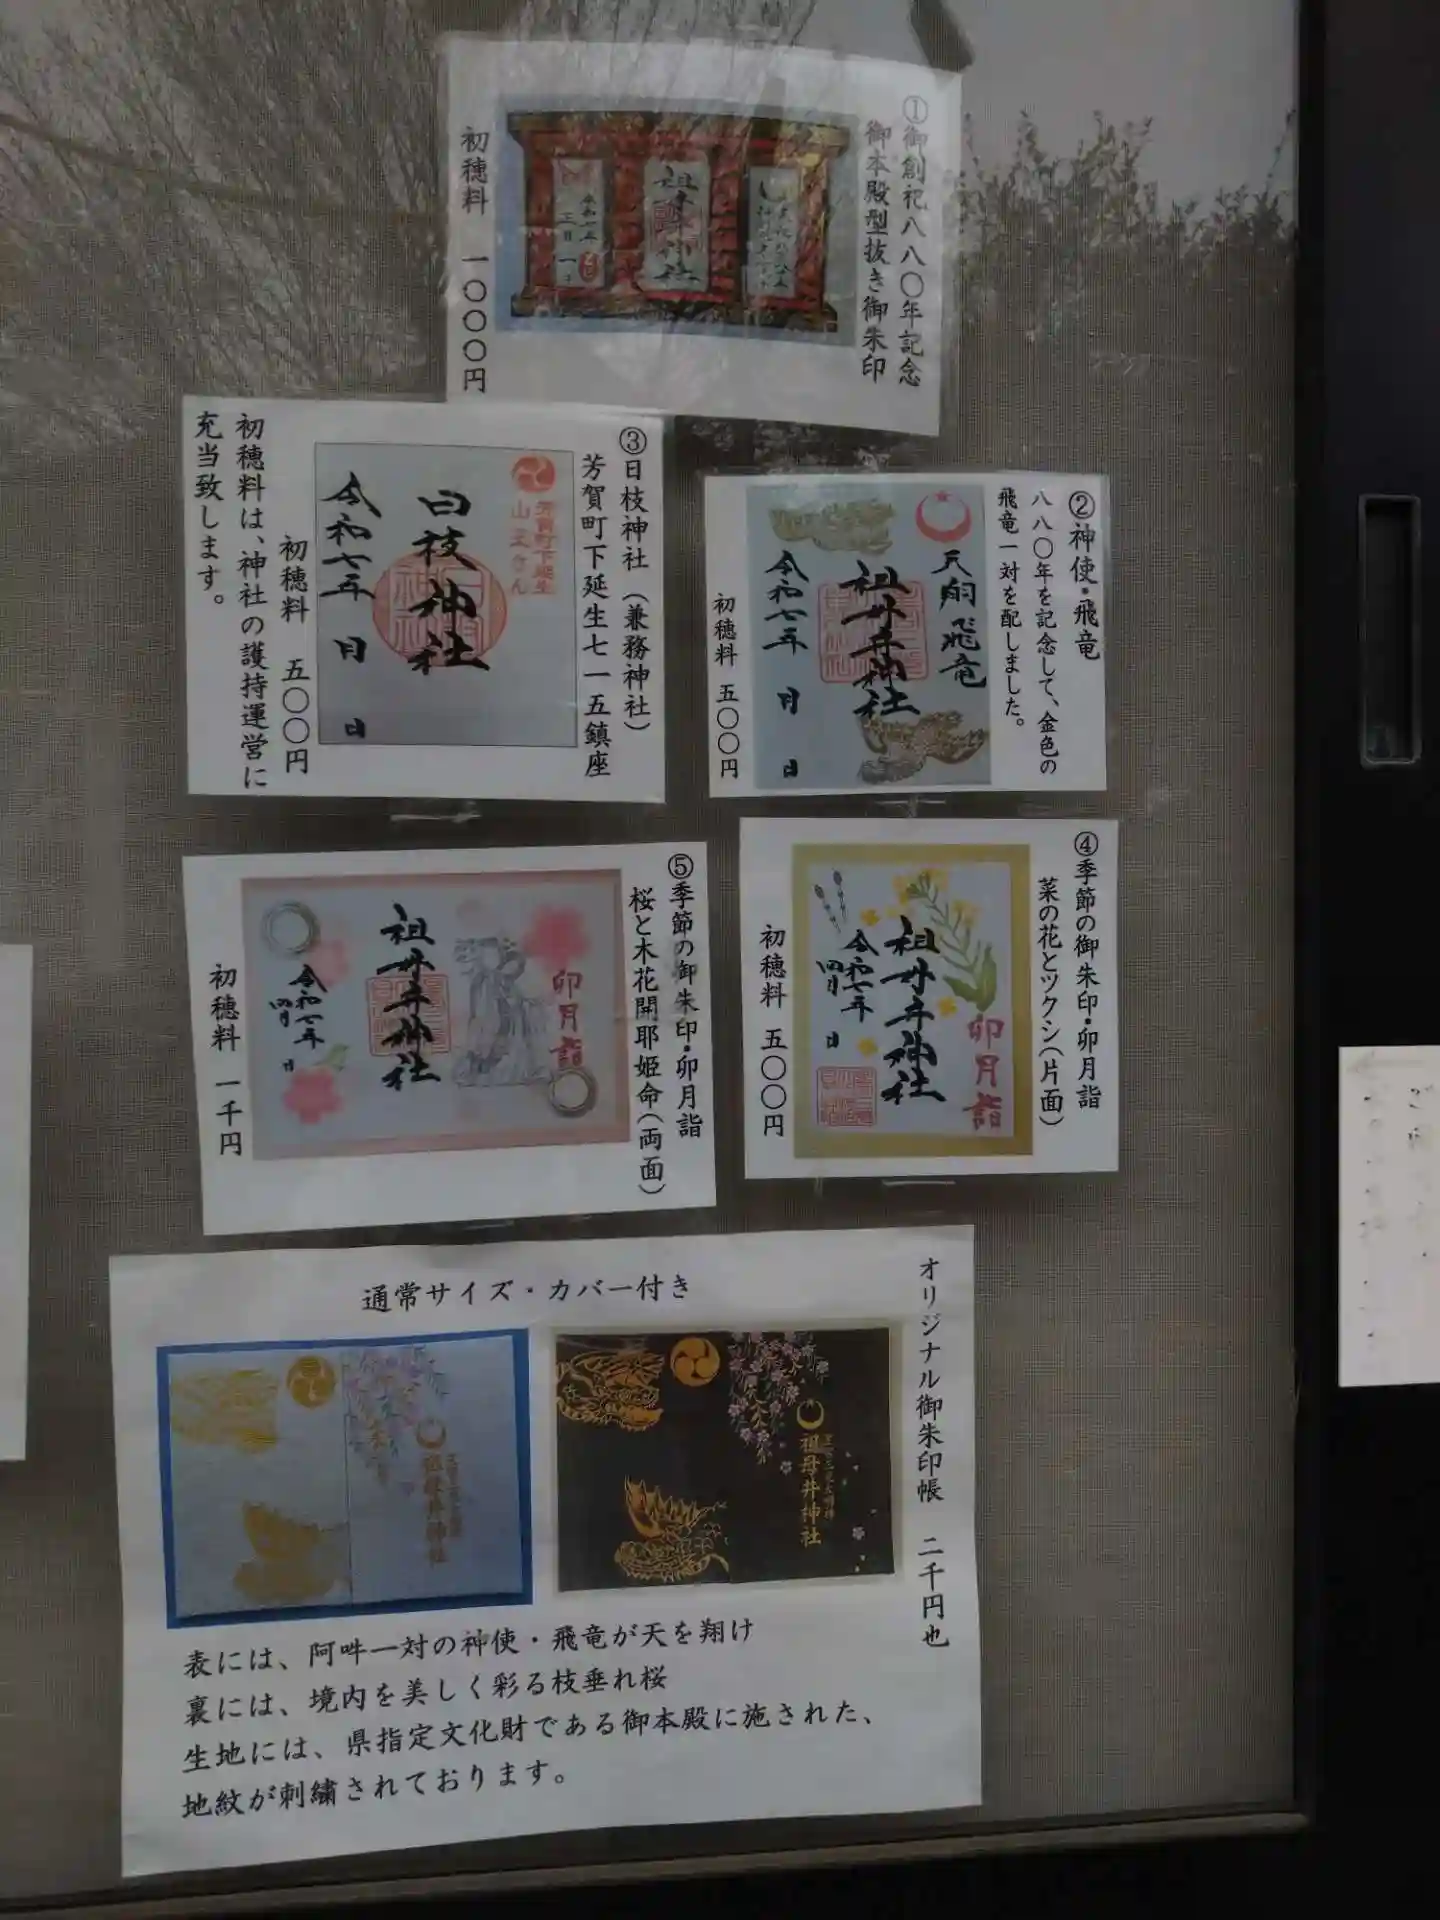 ①御創祀八八〇年記念
御本殿型抜き御朱印
祖母井神社
令和七年
初穂料 一〇〇〇円
②神使・飛竜
八八〇年を記念して、金色の
飛竜一対を配しました。
天翔飛竜
祖母井神社
令和七年 月 日
初穂料 五〇〇円
③日枝神社(兼務神社)
芳賀町下延生七一五鎮座
芳賀町下延生
山王さん
日枝神社
令和七年 月 日
初穂料 五〇〇円
初穂料は、神社の護持運営に
充当致します。
④季節の御朱印・卯月詣
菜の花とツクシ(片面)
卯月詣
祖母井神社
令和七年
四月 日
初穂料 五〇〇円
⑤季節の御朱印・卯月詣
桜と木花開耶姫命(両面)
卯月詣
祖母井神社
令和七年
四月 日
初穂料 一千円
オリジナル御朱印帳 二千円也
通常サイズ・カバー付き
祖母井神社
祖母井神社
表には、阿吽一対の神使・飛竜が天を翔け
裏には、境内を美しく彩る枝垂れ桜
生地には、県指定文化財である御本殿に施された、
地紋が刺繍されております。